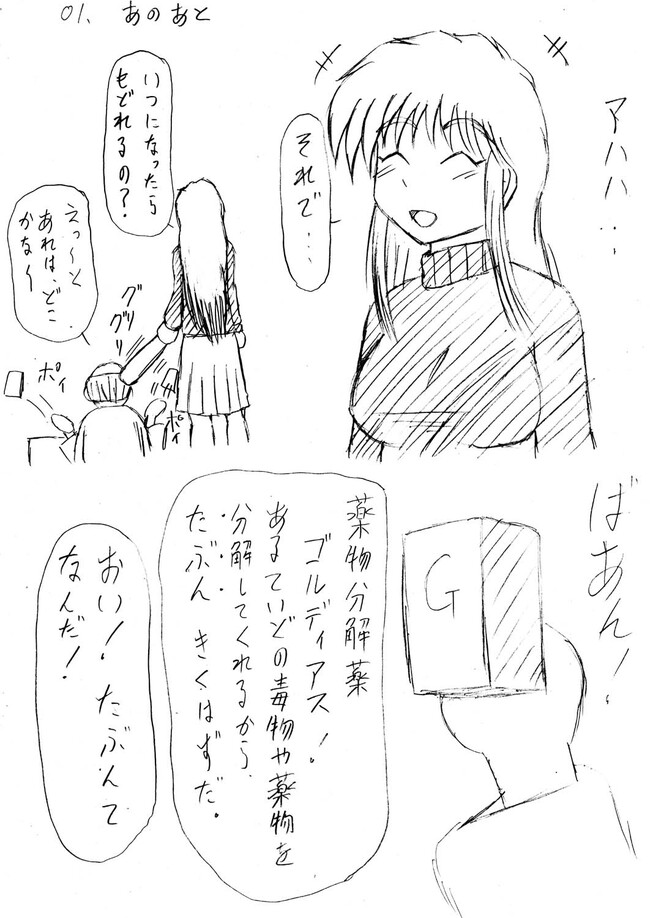 01. あのあと
アハハ…
それで…
いつになったら
もどれるの?
えっ〜と
あれは、どこ
かな〜
グリ
グリ
ポイ
ポイ
ばあん!
G
薬物分解薬
ゴルディアス!
あるていどの毒物や薬物を
分解してくれるから、
たぶん きくはずだ。
おい!たぶんて
なんだ!